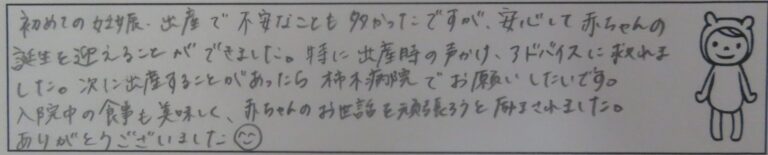 初めての妊娠・出産で不安なことも多かったですが、安心して赤ちゃんの
誕生を迎えることができました。特に出産時の声かけ、アドバイスに救われま
した。次に出産することがあったら柿木病院でお願いしたいです。
入院中の食事も美味しく、赤ちゃんのお世話を頑張ろうと励まされました。
ありがとうございました